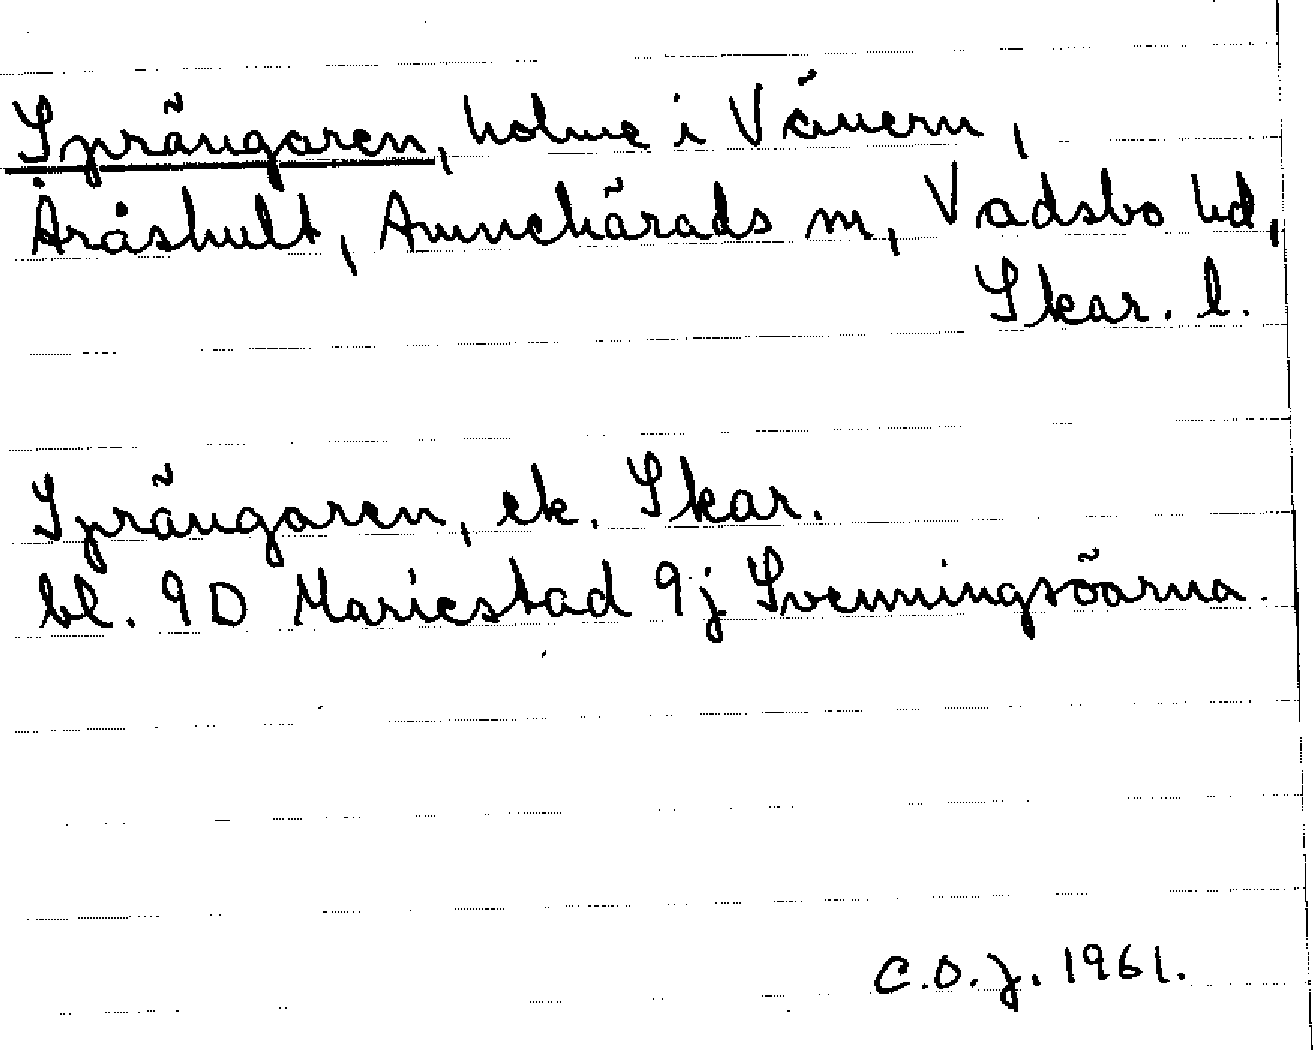 Sprängaren, holme i Vänern,
Åråshult, Amnehärads sn, Vadsbo hd,
Skar. l.
Sprängaren, ek. Skar.
bl. 9D Mariestad 9j Svenningsöarna.
C.O.J. 1961.